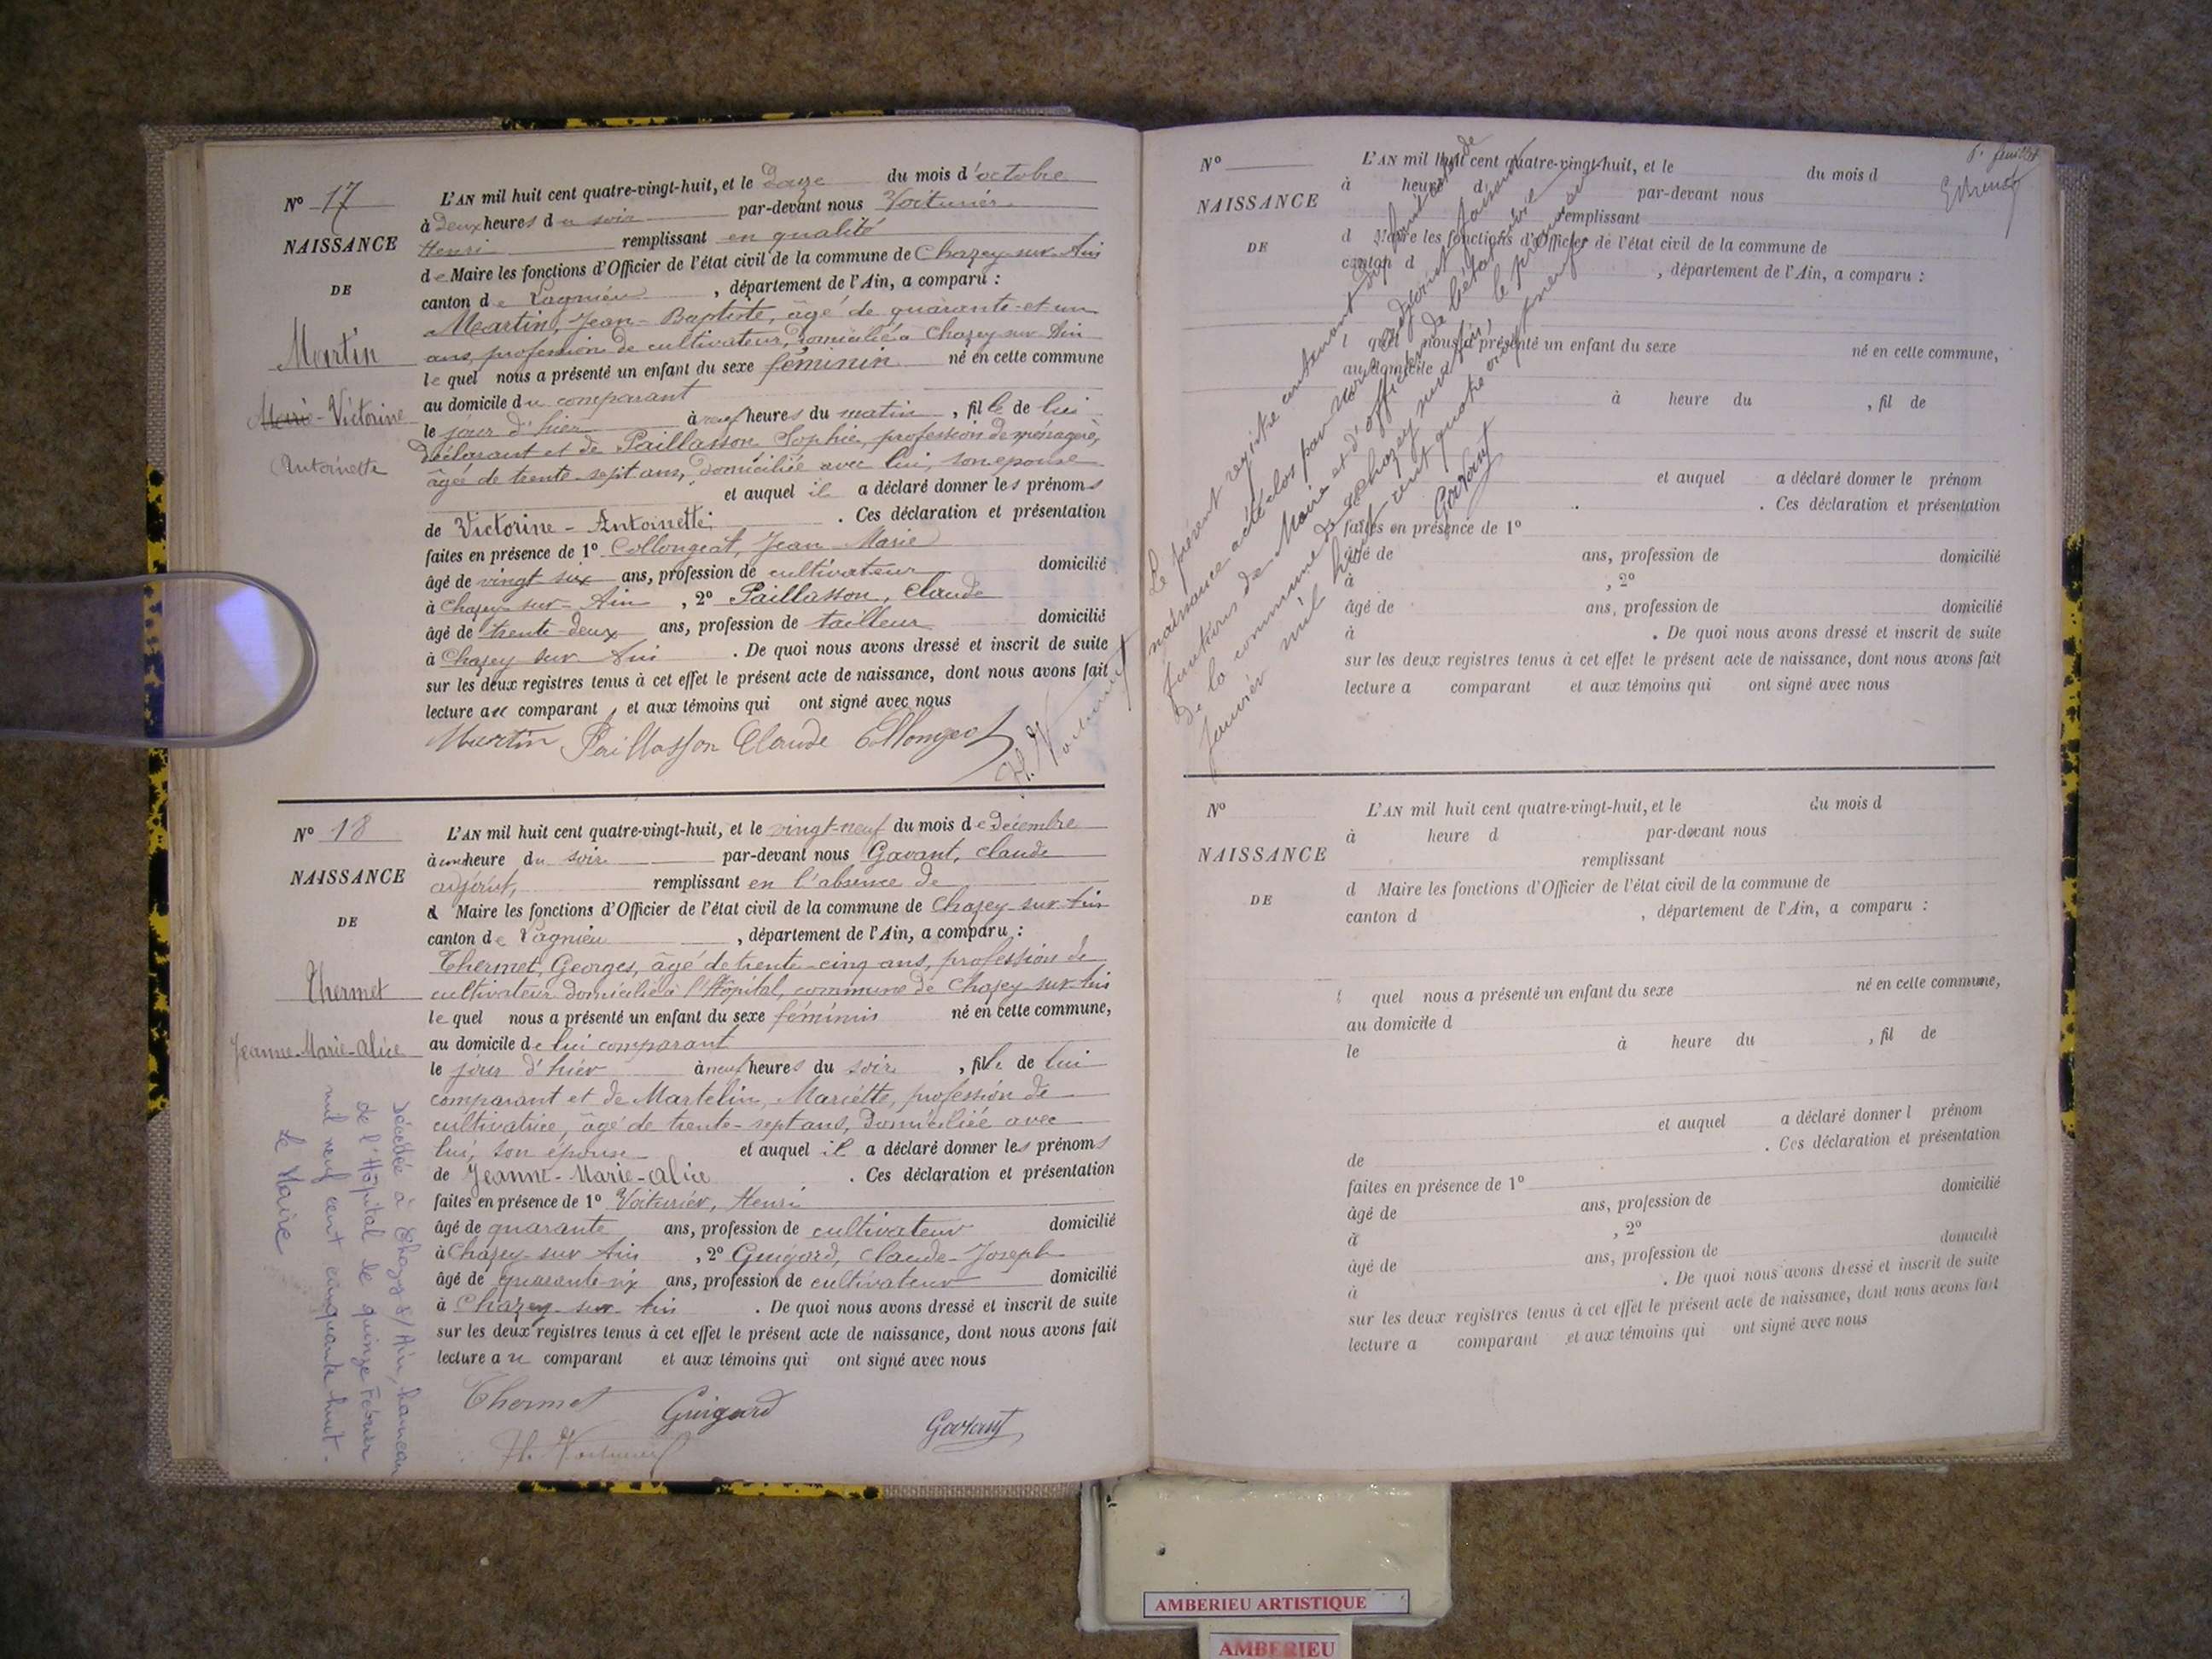 N° 17
NAISSANCE
DE
Martin
Marie-Victorine
Antoinette
L'AN mil huit cent quatre-vingt-huit, et le Douze du mois d'octobre
à Deux heures du soir par-devant nous Voiturier
Henri remplissant en qualité
de Maire les fonctions d'Officier de l'état civil de la commune de Chazey-sur-Ain
canton de Lagnieu, département de l'Ain, a comparu :
Martin, Jean-Baptiste, âgé de quarante-et-un
ans, profession de cultivateur, domicilié à Chazey-sur-Ain
lequel nous a présenté un enfant du sexe féminin né en cette commune
au domicile du comparant
le jour d'hier à neuf heures du matin, fille de lui
Déclarant et de Paillasson Sophie, profession de ménagère,
âgée de trente-sept ans, domiciliée avec lui, son épouse
et auquel il a déclaré donner les prénoms
de Victorine-Antoinette. Ces déclaration et présentation
faites en présence de 1° Collongeat, Jean Marie
âgé de vingt-six ans, profession de cultivateur domicilié
à Chazey-sur-Ain, 2° Paillasson, Claude
âgé de trente-deux ans, profession de tailleur domicilié
à Chazey sur Ain. De quoi nous avons dressé et inscrit de suite
sur les deux registres tenus à cet effet le présent acte de naissance, dont nous avons fait
lecture au comparant, et aux témoins qui ont signé avec nous
Martin Paillasson Claude Collongeat
N° 18
NAISSANCE
DE
Thermet
Jeanne-Marie-Alice
L'AN mil huit cent quatre-vingt-huit, et le vingt-neuf du mois de Décembre
à une heure du soir par-devant nous Gavant, Claude
adjoint, remplissant en l'absence de
d Maire les fonctions d'Officier de l'état civil de la commune de Chazey-sur-Ain
canton de Lagnieu, département de l'Ain, a comparu :
Thermet, Georges, âgé de trente-cinq ans, profession de
cultivateur domicilié à l'Hôpital, commune de Chazey-sur-Ain
lequel nous a présenté un enfant du sexe féminin né en cette commune,
au domicile de lui comparant
le jour d'hier à neuf heures du soir, fille de lui
comparant et de Martelin, Mariette, profession de
cultivatrice, âgé de trente-sept ans, domiciliée avec
lui, son épouse et auquel il a déclaré donner les prénoms
de Jeanne-Marie-Alice. Ces déclaration et présentation
faites en présence de 1° Voiturier, Henri
âgé de quarante ans, profession de cultivateur domicilié
à Chazey-sur-Ain, 2° Guigard, Claude-Joseph
âgé de quarante-six ans, profession de cultivateur domicilié
à Chazey-sur-Ain. De quoi nous avons dressé et inscrit de suite
sur les deux registres tenus à cet effet le présent acte de naissance, dont nous avons fait
lecture au comparant et aux témoins qui ont signé avec nous
Thermet Guigard Gavant
H. Voiturier
Décédée à Chazey s/Ain, hameau
de l'Hôpital le quinze Février
mil neuf cent cinquante huit.
Le Maire
8e feuillet
N°
NAISSANCE
DE
L'AN mil huit cent quatre-vingt-huit, et le du mois d
à heure d par-devant nous
remplissant
d Maire les fonctions d'Officier de l'état civil de la commune de
canton d , département de l'Ain, a comparu :
l quel nous a présenté un enfant du sexe né en cette commune,
au domicile d
à heure du , fil de
et auquel a déclaré donner le prénom
. Ces déclaration et présentation
faites en présence de 1°
âgé de ans, profession de domicilié
à , 2°
âgé de ans, profession de domicilié
à . De quoi nous avons dressé et inscrit de suite
sur les deux registres tenus à cet effet le présent acte de naissance, dont nous avons fait
lecture a comparant et aux témoins qui ont signé avec nous
Le présent registre contenant dix huit actes de
naissance a été clos par nous adjoint faisant
fonctions de Maire et d'officier de l'état civil
de la commune de Chazey sur Ain, le premier
Janvier mil huit cent quatre vingt neuf
Gavant
N°
NAISSANCE
DE
L'AN mil huit cent quatre-vingt-huit, et le du mois d
à heure d par-devant nous
remplissant
d Maire les fonctions d'Officier de l'état civil de la commune de
canton d , département de l'Ain, a comparu :
l quel nous a présenté un enfant du sexe né en cette commune,
au domicile d
le à heure du , fil de
et auquel a déclaré donner l prénom
de . Ces déclaration et présentation
faites en présence de 1°
âgé de ans, profession de domicilié
à , 2°
âgé de ans, profession de domicilié
à . De quoi nous avons dressé et inscrit de suite
sur les deux registres tenus à cet effet le présent acte de naissance, dont nous avons fait
lecture a comparant et aux témoins qui ont signé avec nous
AMBERIEU ARTISTIQUE
AMBERIEU